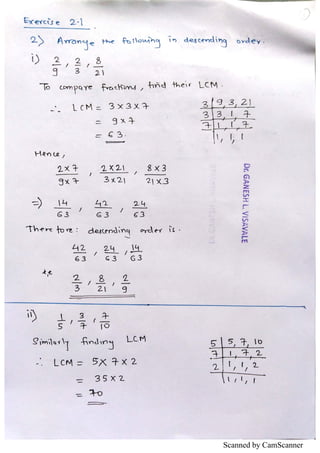 Exercise 2.1
2) Arrange the following in descending order.
i) 2/9 , 2/3 , 8/21
To compare fractions, find their LCM.
∴ LCM = 3×3×7
= 9×7
= 63.
3 | 9, 3, 21
3 | 3, 1, 7
7 | 1, 1, 7
1, 1, 1
Hence,
2×7/9×7 , 2×21/3×21 , 8×3/21×3
⇒) 14/63 , 42/63 , 24/63
Therefore: descending order is.
42/63 , 24/63 , 14/63
i.e. 2/3 , 8/21 , 2/9
Dr. GANESH L. VISAVALE
ii) 1/5 , 3/7 , 7/10
Similarly finding LCM
∴ LCM = 5×7×2
= 35×2
= 70
5 | 5, 7, 10
7 | 1, 7, 2
2 | 1, 1, 2
1, 1, 1
Scanned by CamScanner